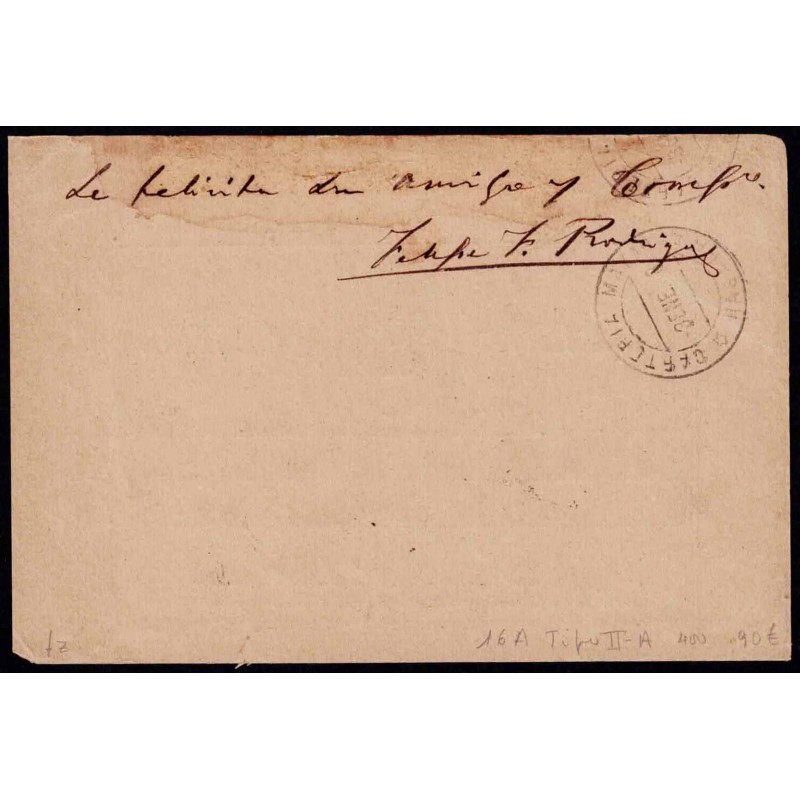 Le felicita su amigo y Compº.
Felipe F. Rodrigues
CARTERIA
-8 ENE
tz
16A Tipo II-A 400 90€